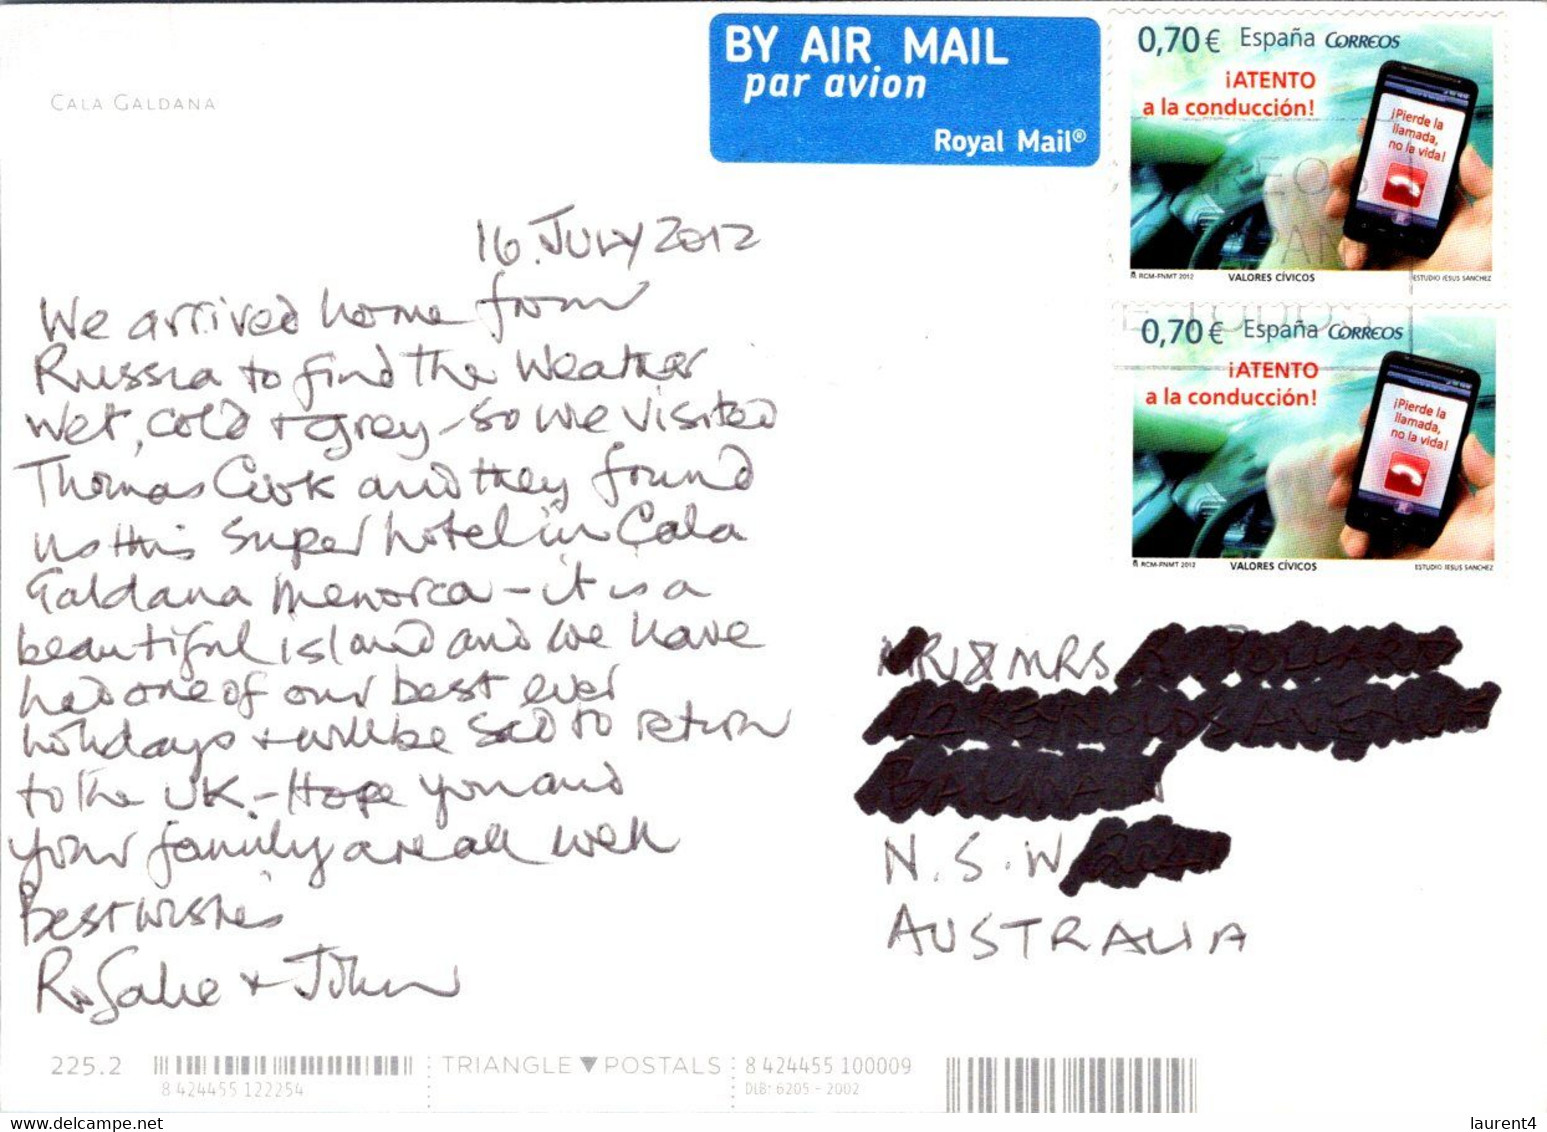 CALA GALDANA
BY AIR MAIL
par avion
Royal Mail®
0,70 € España CORREOS
¡ATENTO
a la conducción!
¡Pierde la
llamada,
no la vida!
RCM-FNMT 2012 VALORES CÍVICOS ESTUDIO JESUS SANCHEZ
0,70 € España CORREOS
¡ATENTO
a la conducción!
¡Pierde la
llamada,
no la vida!
RCM-FNMT 2012 VALORES CÍVICOS ESTUDIO JESUS SANCHEZ
16 JULY 2012
We arrived home from
Russia to find the weather
wet, cold + grey - so we visited
Thomas Cook and they found
us this super hotel in Cala
Galdana Menorca - it is a
beautiful island and we have
had one of our best ever
holidays + will be sad to return
to the UK. - Hope you and
your family are all well
Best wishes
Rosalie + John
MR & MRS
N.S.W
AUSTRALIA
225.2
8 424455 122254
TRIANGLE ▼ POSTALS
8 424455 100009
DLB: 6205 - 2002
laurent4